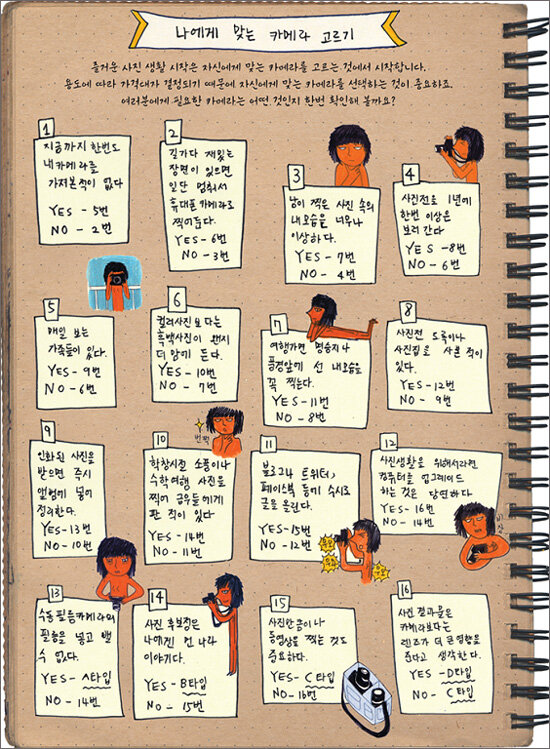 나에게 맞는 카메라 고르기
즐거운 사진 생활 시작은 자신에게 맞는 카메라를 고르는 것에서 시작합니다.
용도에 따라 가격대가 결정되기 때문에 자신에게 맞는 카메라를 선택하는 것이 중요하죠.
여러분에게 필요한 카메라는 어떤 것인지 한번 확인해 볼까요?
1
지금까지 한번도
내카메라를
가져본적이 없다
YES - 5번
NO - 2번
2
길가다 재밌는
장면이 있으면
일단 멈춰서
휴대폰카메라로
찍어둔다.
YES - 6번
NO - 3번
3
남이 찍은 사진 속의
내모습은 너무나
이상하다.
YES - 7번
NO - 4번
4
사진전을 1년에
한번 이상은
보러 간다
YES - 8번
NO - 6번
5
매일 보는
가족들이 있다.
YES - 9번
NO - 6번
6
컬러사진 보다는
흑백사진이 왠지
더 맘에 든다.
YES - 10번
NO - 7번
7
여행가면 명승지나
풍경앞에 선 내모습을
꼭 찍는다.
YES - 11번
NO - 8번
8
사진전 도록이나
사진집을 사본 적이
있다.
YES - 12번
NO - 9번
9
인화된 사진을
받으면 즉시
앨범에 넣어
정리한다.
YES - 13번
NO - 10번
번쩍
10
학창시절 소풍이나
수학여행 사진을
찍어 급우들에게
판 적이 있다
YES - 14번
NO - 11번
11
블로그나 트위터,
페이스북 등에 수시로
글을 올린다.
YES - 15번
NO - 12번
12
사진생활을 위해서라면
컴퓨터를 업그레이드
하는 것은 당연하다
YES - 16번
NO - 14번
13
수동필름카메라의
필름을 넣고 뺄
수 있다.
YES - A타입
NO - 14번
14
사진 후보정은
나에겐 먼 나라
이야기다.
YES - B타입
NO - 15번
15
사진만큼이나
동영상을 찍는 것도
중요하다.
YES - C타입
NO - 16번
16
사진 결과물은
카메라보다는
렌즈가 더 큰영향을
준다고 생각한다.
YES - D타입
NO - C타입